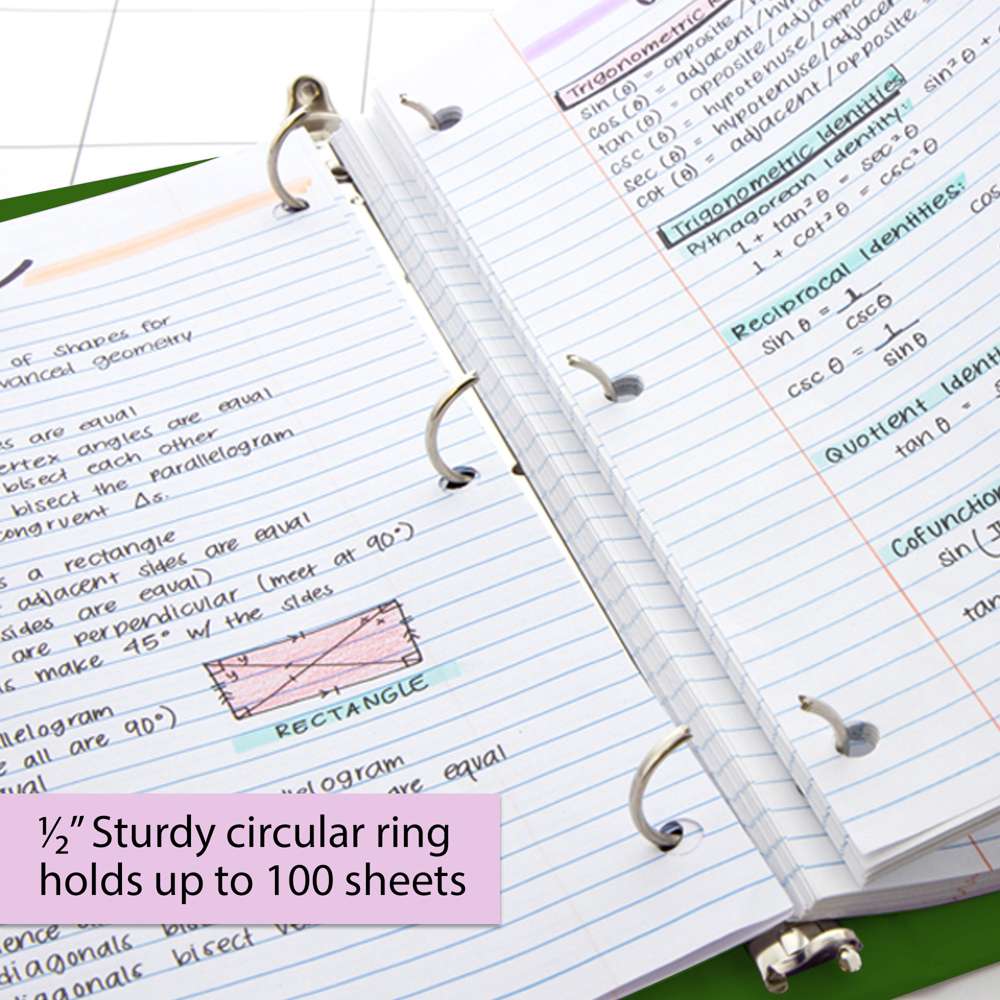 of shapes for
advanced geometry
es are equal
vertex angles are equal
bisect each other
bisect the parallelogram
congruent Δs.
s a rectangle
adjacent sides are equal
sides are equal)
are perpendicular (meet at 90°)
s make 45° w/ the sides
y
y
x
x
RECTANGLE
llelogram
e all are 90°)
ual
llelogram
are equal
½” Sturdy circular ring
holds up to 100 sheets
diagonals
diagonals bisect
Trigonometric
sin (θ) = opposite / h
cos (θ) = adjacent / hy
tan (θ) = opposite / adja
csc (θ) = hypotenuse / oppo
sec (θ) = hypotenuse / adjacen
cot (θ) = adjacent / opposite
Trigonometric Identities
Pythagorean Identity:
sin² θ +
1 + tan² θ = sec² θ
1 + cot² θ = csc² θ
Reciprocal Identities:
sin θ = 1
cscθ
cos
csc θ = 1
sinθ
Quotient Identi
tan θ =
Cofunction
sin (
tan